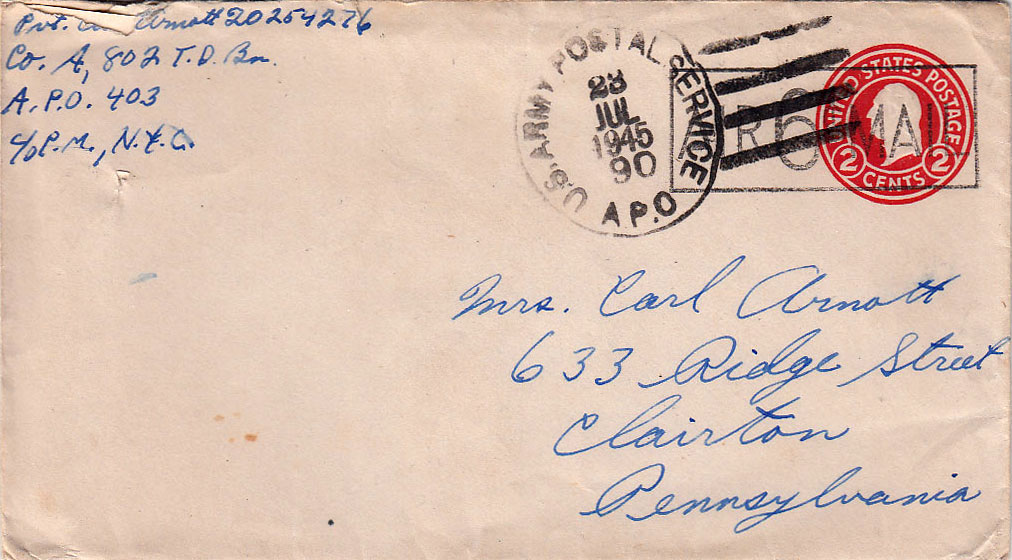 Pvt. Arnott 20254276
Co. A, 802 T.D. Bn.
A.P.O. 403
c/o P.M., N.Y.C.
U.S. ARMY POSTAL SERVICE
23
JUL
1945
90
A.P.O
AIR 6¢ MAIL
UNITED STATES POSTAGE
2 CENTS 2
Mrs. Carl Arnott
633 Ridge Street
Clairton
Pennsylvania